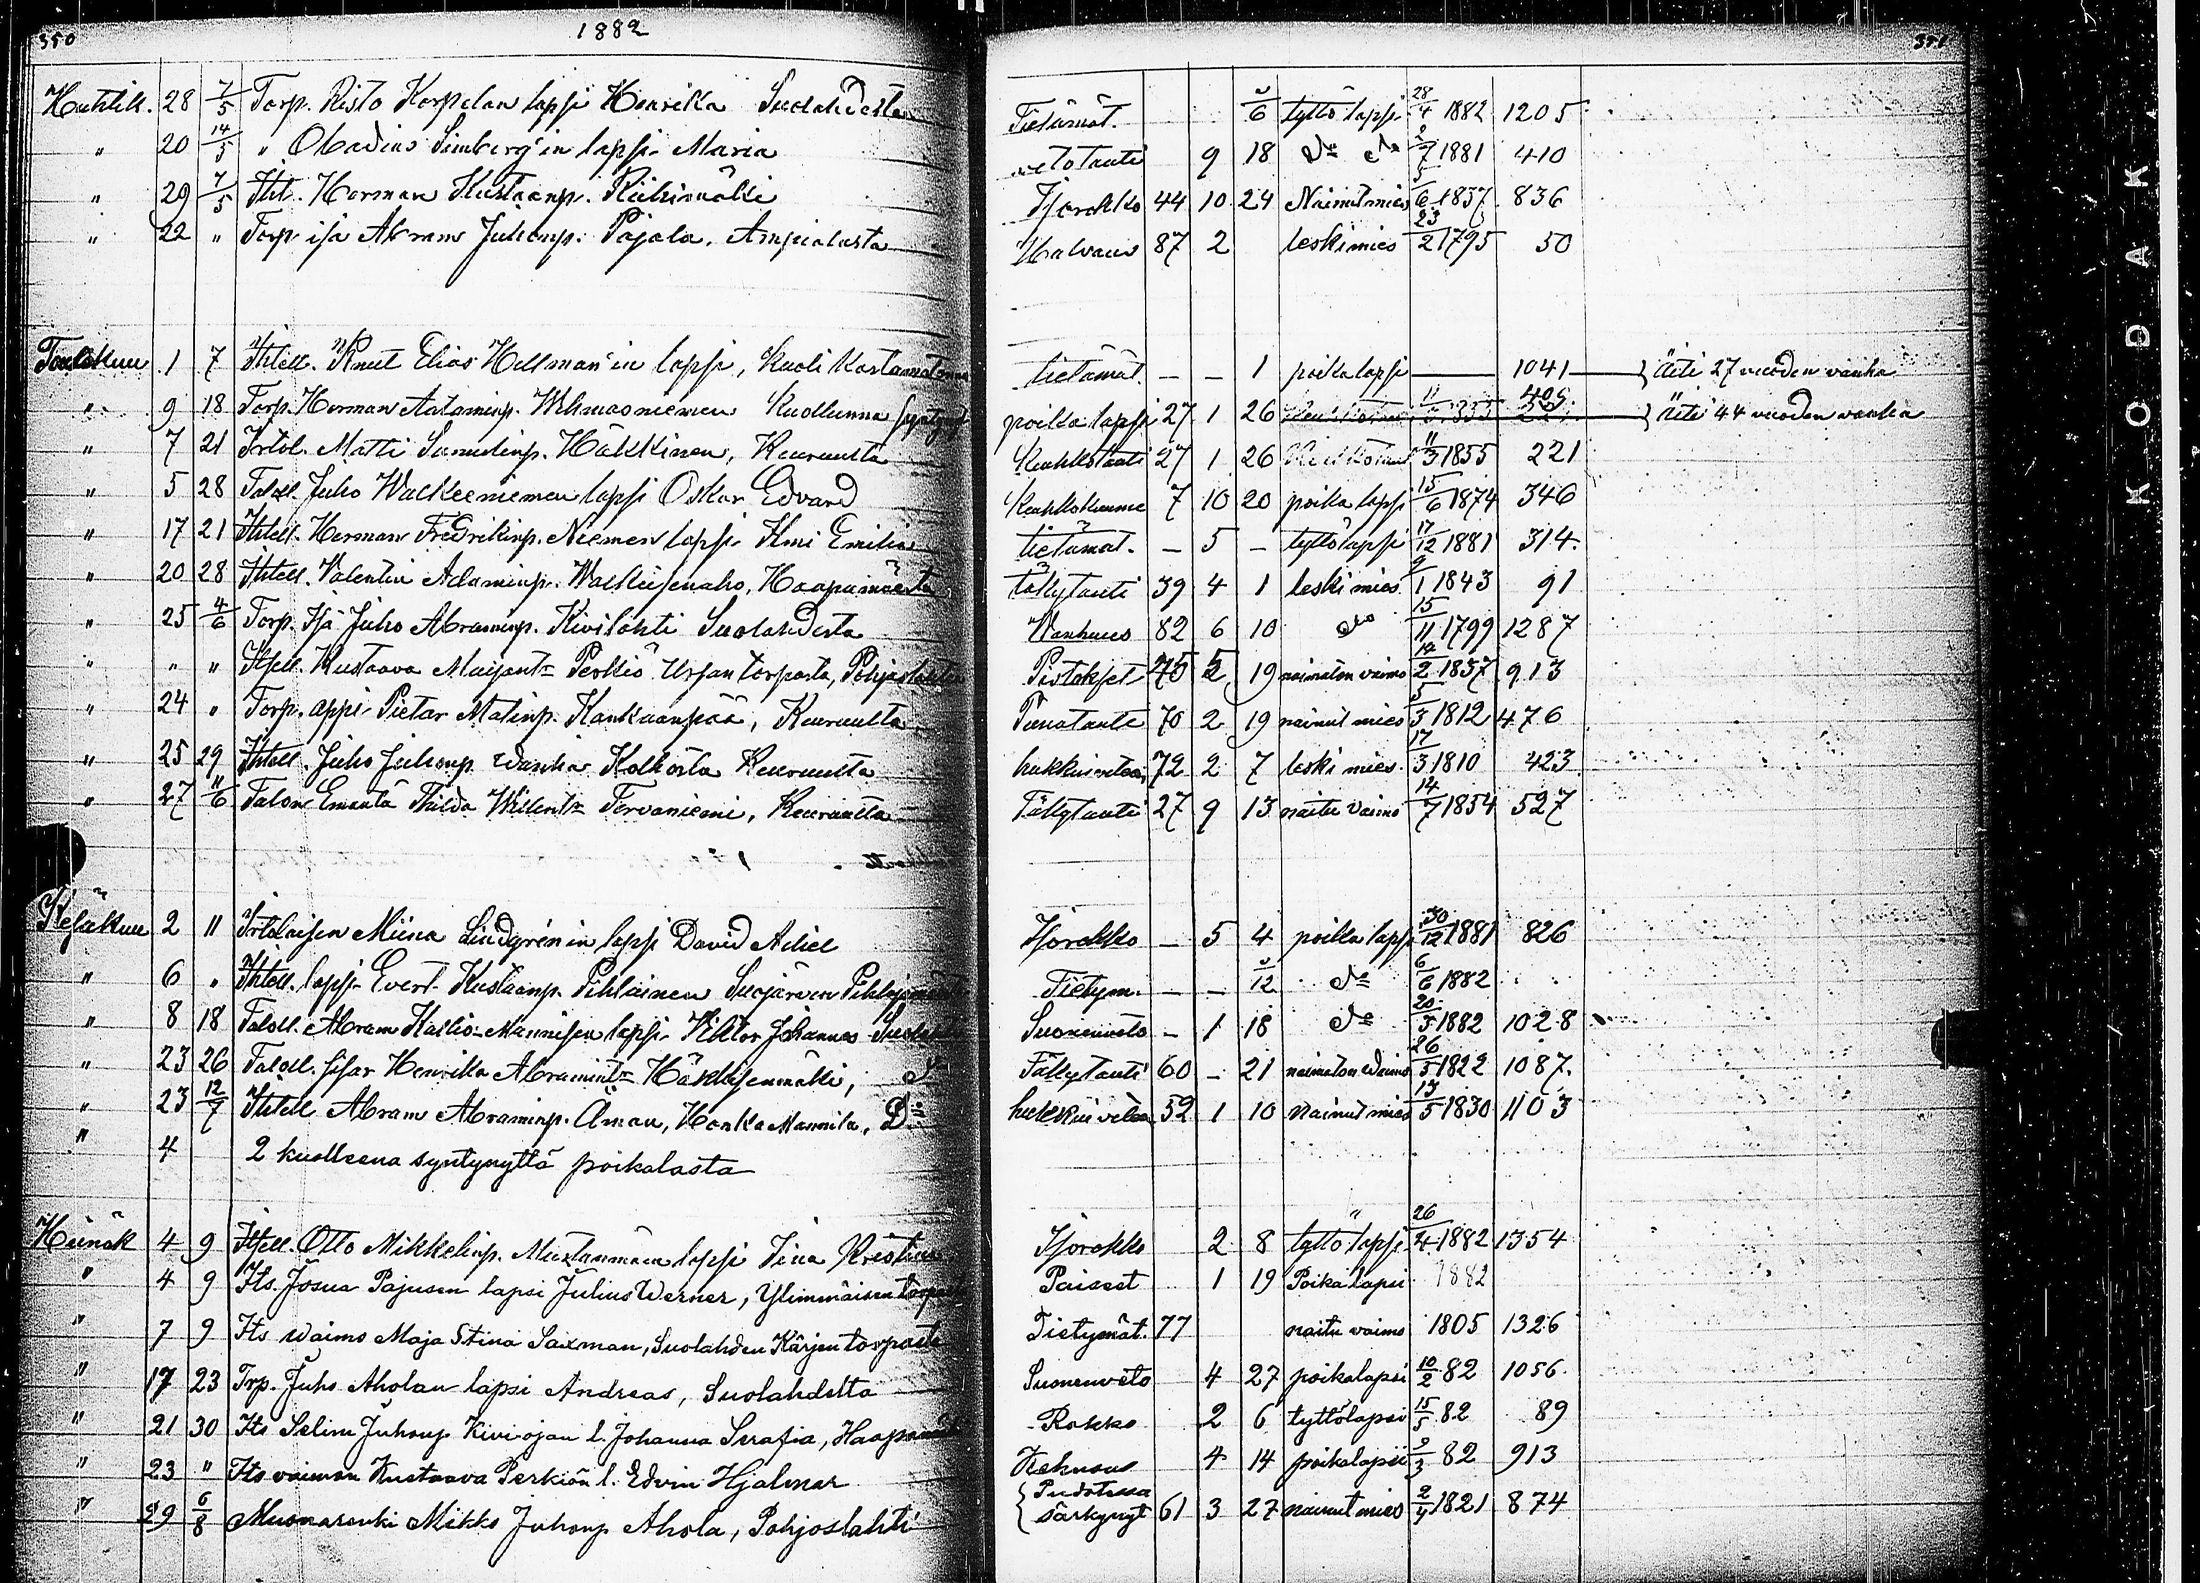 350
1882
351
Huhtik. 28 7/5 Torp. Risto Korpelan lapsi Henrika Suolahdesta Tietämät. 6 tyttö lapsi 28/4 1882 1205
" 20 14/5 " Obadius Limberg'in lapsi Maria 9 18 Do Do 2/7 1881 410
" 29 7/5 Itit. Herman Kustaanp. Riihimäki 44 10 24 Nainut mies 5/6 1837 836
" 22 " Torp. isä Abram Juhonp. Pajala, Ampialasta Halvaus 87 2 leskimies 23/2 1795 50
Toukokuu 1 7 Ittell. Knut Elias Hellman'in lapsi, kuoli kastamatonna tietämät. – – 1 poika lapsi 1041 äiti 27 vuoden vanha
" 9 18 Torp. Herman Aataminp. Wehmasniemen kuollunna poika lapsi 27 1 26 äiti 44 vuoden vanha
" 7 21 Irtol. Matti Samulinp. Häkkinen, Keuruulta Keuhkotauti 27 1 26 11/3 1855 221
" 5 28 Taloll. Juho Walkeeniemen lapsi Oskar Edvard Keuhkokuume 7 10 20 poika lapsi 15/6 1874 346
" 17 21 Ittell. Herman Fredrikinp. Niemen lapsi Ilmi Emilia tietämät. – 5 – tyttölapsi 17/12 1881 314.
" 20 28 Ittell. Valentin Adaminp. Walkeisenaho, Haapamäestä täkytauti 39 4 1 leski mies 9/1 1843 91
" 25 4/6 Torp. Isä Juho Abraminp. Kivilahti Suolahdesta Wanhuus 82 6 10 do 15/11 1799 1287
" " " Itsell. Kustaava Maijant: Perkiö Urjan torpasta, Pohjaslahti Pistokset 45 2 19 naimaton vaimo 1837 913
" 24 " Torp. appi Pietar Matinp. Kankaanpää, Keuruulta 70 2 19 nainut mies 5/3 1812 476
" 25 29 Ittell. Juho Juhonp wanha Kolhosta Keuruulta hukkui veteen, 72 2 7 leski mies. 17/3 1810 423
" 27 11/6 Talon Emäntä Thilda Willent: Tervaniemi, Keuruulta Täkytauti 27 9 13 naitu vaimo 14/7 1854 527
Kesäkuu 2 11 Irtolaisen Miina Lindgrén'in lapsi David Adiel Isorokko – 5 4 poika lapsi 30/12 1881 826
" 6 " Ittell. lapsi Evert Kustaanp. Pihlainen Suojärven Tietym. – – 12 Do 6/6 1882
" 8 18 Taloll. Abram Kallio-Mannisen lapsi Viktor Johannes Suonenveto – 1 18 Do 20/5 1882 1028
" 23 26 Taloll. sisar Henrika Abramint: Häkkisenmäki, Do Täkytauti 60 – 21 naimaton waimo 26/5 1822 1087.
" 23 12/7 Ittell Abram Abraminp. Åman, Honka Mannila, Do hukkui veteen 52 1 10 nainut mies 13/5 1830 1103
" 4 2 kuolleena syntynyttä poikalasta
Heinäk 4 9 Itsell. Otto Mikkelinp. Mustanmäen lapsi Iina Kristina Isorokko 2 8 tyttö lapsi 26/4 1882 1354
" 4 9 Its. Josua Pajusen lapsi Julius Werner, Ylimmäisen torpasta Paiseet 1 19 Poika lapsi 1882
" 7 9 Its waimo Maja Stina Saxman, Suolahden Kärjen torpasta Tietymät. 77 naitu vaimo 1805 1326
" 17 23 Trp. Juho Aholan lapsi Andreas, Suolahdelta Suonenveto 4 27 poikalapsi 10/2 82 1056
" 21 30 Its Selim Juhonp Kiviojan l. Johanna Serafia, Haapamäki Rokko 2 6 tyttölapsi 15/5 82 89
" 23 " Its vaimon Kustaava Perkiön l. Edvin Hjalmar 4 14 poikalapsi 9/3 82 913
" 29 6/8 Muonarenki Mikko Juhonp Ahola, Pohjoslahti Pudotessa särkynyt 61 3 27 nainut mies 2/4 1821 874
KODAK